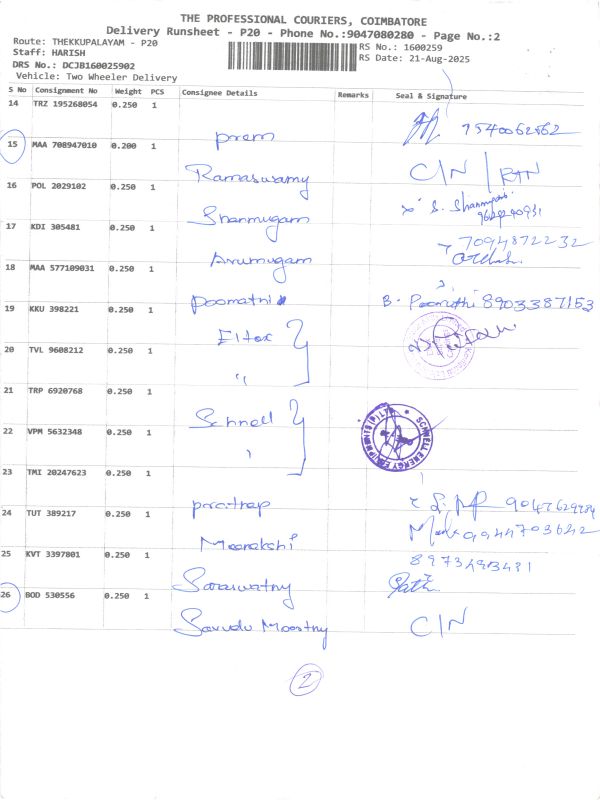 THE PROFESSIONAL COURIERS, COIMBATORE
Delivery Runsheet - P20 - Phone No.:9047080280 - Page No.:2
Route: THEKKUPALAYAM - P20
RS No.: 1600259
Staff: HARISH
RS Date: 21-Aug-2025
DRS No.: DCJB160025902
Vehicle: Two Wheeler Delivery
S No Consignment No Weight PCS Consignee Details Remarks Seal & Signature
14 TRZ 195268054 0.250 1 prem
15 MAA 708947010 0.200 1 Ramaswamy C/N
16 POL 2029102 0.250 1 Shanmugam S. Shanmugam
17 KDI 305481 0.250 1 Arumugam 7094872232
18 MAA 577109031 0.250 1 Poomathi B. Poomathi 8903387153
19 KKU 398221 0.250 1 Eltex
20 TVL 9608212 0.250 1 "
21 TRP 6920768 0.250 1 Schnell
22 VPM 5632348 0.250 1 SCHNELL ENERGY EQUIPMENTS (P) LTD
23 TMI 20247623 0.250 1 prathap
24 TUT 389217 0.250 1 Meenakshi 9944703642
25 KVT 3397801 0.250 1 Saraswathy
26 BOD 530556 0.250 1 C/N
2